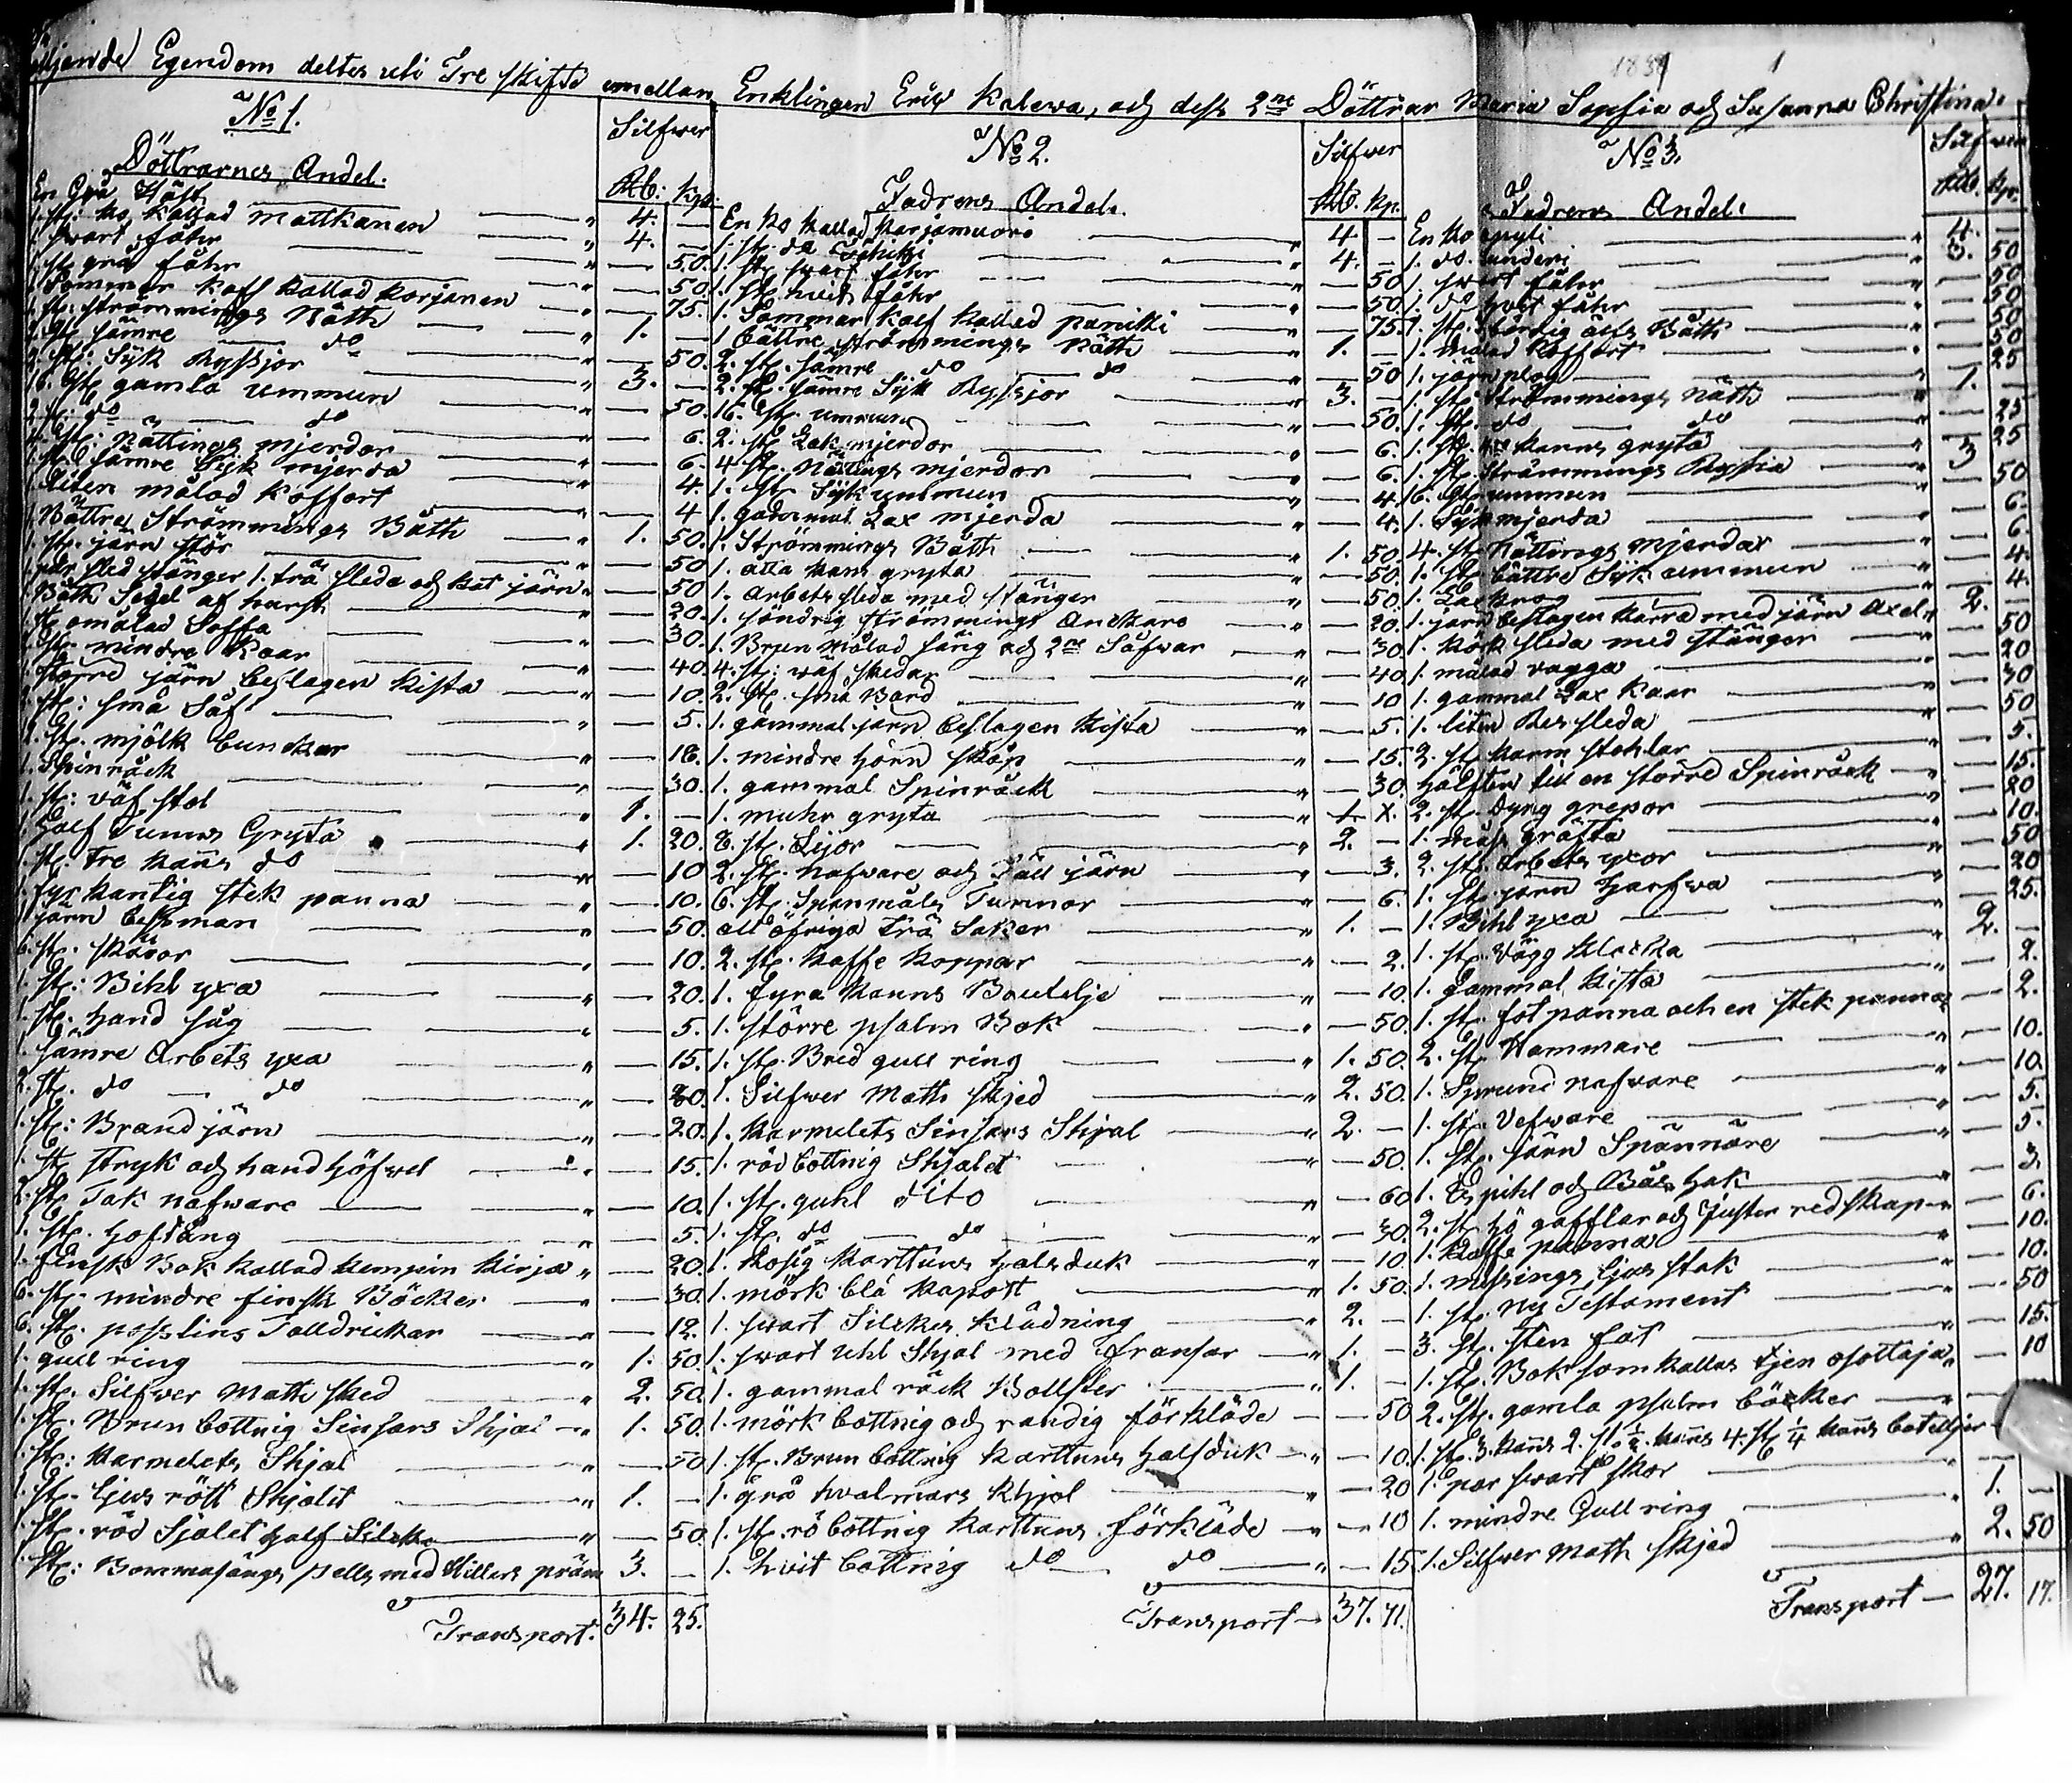 1839 1
Egendom deltes uti Tre skifte emellan Enklingen Eric Kalewa, och dess 2ne Döttrar Maria Sophia och Susanna Christina.
No 1.
Döttrarnes Andel.
Silfwer
Rb: Kp.
En Grå Häst
1. st: ko kallad Mattkanen " 4. —
1 swart fåhr " 4. —
1 st. grå fåhr " — 50.
1 Sommar kalf kallad Korjanen " — 50
1. st: strömmings Nöth " — 75.
1 st. sämre do " 1. —
2 st: Syk Ryssjor " — 50.
16. st. gamla ummun " 3. —
2 st: do do " — 50.
4. st: Nättings mjerdar " — 6.
1. st. sämre Syk mjerda " — 6.
1 liten målad Koffort " 4.
1. Bättre Strömmings Båth " — 4
1. st. järn stör " 1. 50.
1 par sled stänger 1. trä sleda och hat järn " — 50
1 Båth Segel af — 50
1 st omålad Soffa — 20.
1 st. mindre Kaar " — 30.
1 större järn beslagen Kista " — 40.
2 st: små Såf " — 10.
2. st. mjölk bunckar " — 5.
1. Spinråck " — 18.
1. st: väf stol " — 30.
1 Half Tunns Gryta " 1. —
1. st. tre kanns do " 1. 20.
1. fyrkantig stek panna " — 10
1 järn bessman " — 10.
6. st. skåvor " — 50.
1. st: Bihl yxa — 10.
1. st. hand såg " — 20.
1. sämre Arbets yxa " — 5.
2. st. do — do " — 15.
1. st: Brand järn " — 20.
1. st stryk och hand höfwel " — 20.
2. st. Tak nafware " — 15.
1. st. Hoftång " — 10.
1. finsk Bok kallad Kempein Kirja " — 5.
6. st. mindre finsk Böcker — 20.
6. st. posslins Talldrickar " — 30.
1. gull ring " — 12.
1. st. Silfwer Math sked " 1. 50.
1. st. Brun bottnig Sinsars Skjal " 2. 50.
1. st: Karmelets Skjal " 1. 50.
1. st. ljus rött Skjalet " — 50
1. st. röd Sjalet half Silckes " 1. —
1. st: Bommasängs " — 50.
3. —
Transport. 34. 25.
No 2.
Fadrens Andel.
Silfwer
Rb. Kp.
En ko kallad Karjamuori " 4. —
1. st. do " 4. —
1. st. swart fåhr " — 50
1 st. hwit fåhr " — 50.
1. Sommar kalf kallad Panikki " — 75.
1 bättre strömmings Nöth 1. —
2. st. sämre do do " — 50
2. st. sämre Syk Ryssjor " 3. —
16. st. ummun " — 50.
2. st. Lak mjerdor " — 6.
4. st. Nättings mjerdar " — 6.
1. st Syk ummun " — 4
1. gammal Lax mjerda " — 4.
1. Strömmings Båth " 1. 50
1. åtta kans gryta — 50.
1. Arbets sleda med stänger " — 50.
1. söndrig strömmings Anckare " — 20.
1. Brun Målad säng och 2ne Såfwar " — 30.
4. st: wäf skedar " — 40.
2. st. små Bord " — 10
1. gammal järn beslagen Kista " — 5.
1. mindre hörn skåp " — 15.
1. gammal Spinråck " — 30.
1. muhr gryta "
8. st. Lijor " 2. —
2. st. nafware och Täll järn " — 3.
6. st. Spanmåls Tunnor " — 6.
all öfriga trä Saker " 1. —
2. st. kaffe koppar " — 2.
1. fyra kanns Boutelje " — 10.
1. större psalm Bok " — 50.
1. st. Bred gull ring " 1. 50.
1. Silfwer Math skjed " 2. 50.
1. Karmelets Sinsars Skjal " 2. —
1. röd bottnig Skjalet " — 50.
1. st. guhl dito " — 60
1. st. do do " — 30.
1. Rosig Karttuns halsduk " — 10
1. mörk blå Kapott " 1. 50.
1. swart Silckes klädning " 2. —
1. swart uhl Skjal med fransar " 1. —
1. gammal räck Bollster " 1. —
1. mörk bottnig och randig förkläde — 50
1. st. Brun bottnig Karttuns halsduk " — 10.
1. grå hwalmars khjol " — 20
1. st. rö bottnig karttuns förkläde " — 10
1. hvit bottnig do do " — 15
Transport — 37. 71.
No 3.
Fadrens Andel.
Silfwer
Rb. Kp.
En ko " 4. —
1. do. " 3. 50
1. swart fåhr " — 50
1. do hvit fåhr " — 50
1. st. Båth " — 50
1. målad Koffort " — 50
1. järn plog " — 25
1. st. Strömmings nöth " 1. —
1. st. do do " — 25
1. st. kanns gryta " — 25
1. st. Strömmings Ryssia " 3
16. st. ummun " — 50
1. Syk mjerda " — 6.
4. st. Nättings mjerdar " — 6.
1. st. bättre Syk ummun " — 4.
1. Lax krog " — 4.
1. järn beslagen kärra med järn Axel " 2. —
1. körk sleda med stänger " — 50
1. målad vagga " — 20
1. gammal Lax Kaar " — 30
1. liten Res sleda " — 50
2. st karm stohlar " — 5.
hälften till en större Spinråck " — 15.
2. st. dyng grepor " — 20
1. gräfta " — 10.
2. st. Arbets yxor " — 50
1. st. järn harfwa " — 20
1. Bihl yxa " — 25.
1. st. vägg klacka " 2. —
1. gammal Kista " — 2.
1. st. fot panna och en stek panna " — 2.
2. st. Hammare " — 10.
1. Sprund nafware " — 10.
1. st. Vefware " — 5.
1. st. järn Spännäre " — 5.
1. Espihl och Bås hak " — 3.
2. st. hö gafflar och redskap " — 6.
1. kaffe panna " — 10.
1. mässings ljus stak " — 10.
1. st. ny Testament " — 50
3. st. sten fat " — 15.
1. st. Bok som kallas tjen osottaja " — 10
2. st. gamla psalm böcker "
1. st. 3. kans 2. st. ½. kans 4. st. ¼ kans botelljer
1. par swart skor " —
1. mindre Gull ring " 1. —
1. Silfwer Math skjed " 2. 50
Transport — 27. 17.